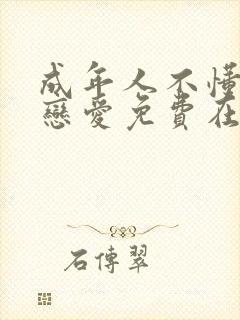 成年人不懂
戀愛免費在
石傳翠